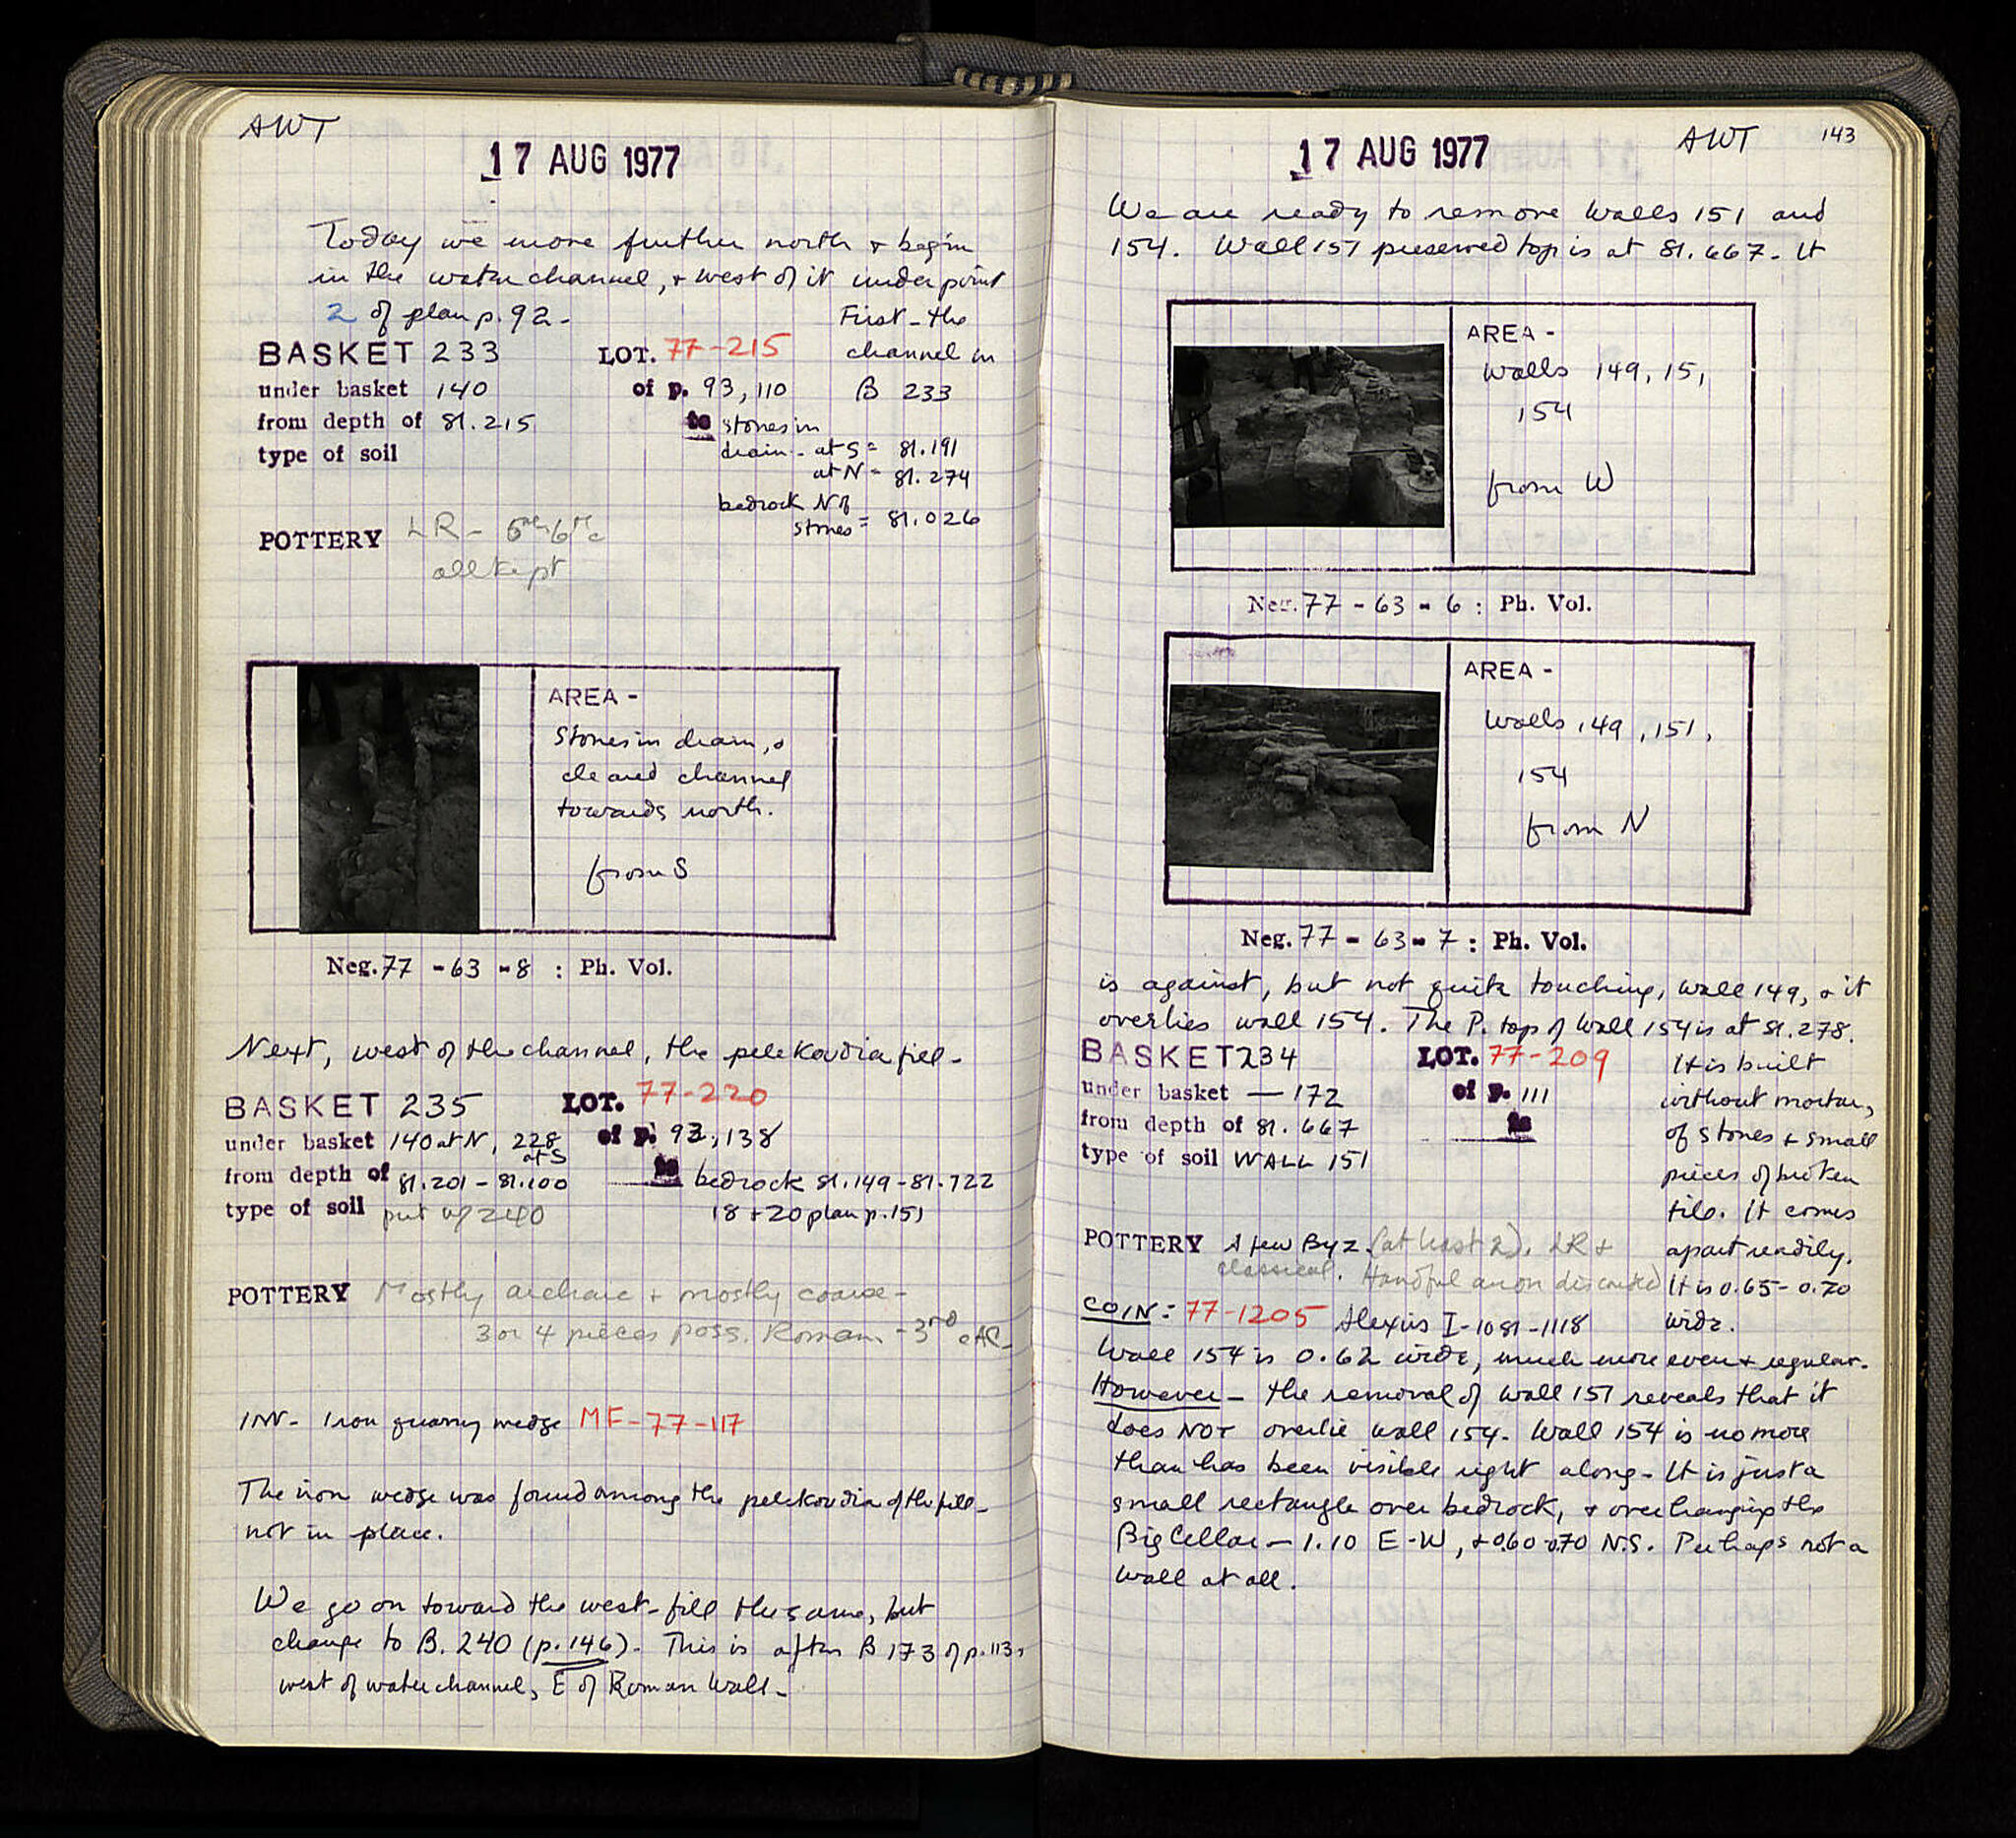 AWT
17 AUG 1977
Today we move further north & begin
in the water channel, & west of it under point
2 of plan p. 92 -
First - the
channel in
B 233
BASKET 233 LOT. 77-215
under basket 140 of p. 93, 110
from depth of 81.215 to stones in
drain - at S = 81.191
at N = 81.274
type of soil
bedrock N of
stones = 81.026
POTTERY LR - 5th 6th c
all kept
AREA -
Stones in drain, &
cleared channel
towards north.
from S
Neg. 77 - 63 - 8 : Ph. Vol.
Next, west of the channel, the pelekoudia fill -
BASKET 235 LOT. 77-220
under basket 140 at N, 228 at S of p. 93, 138
from depth of 81.201 - 81.100 to bedrock 81.149 - 81.722
type of soil put w/ 240 18 + 20 plan p. 151
POTTERY Mostly archaic & mostly coarse -
3 or 4 pieces poss. Roman - 3rd c AC -
INV - Iron quarry wedge MF-77-117
The iron wedge was found among the pelekoudia of the fill -
not in place.
We go on toward the west - fill the same, but
change to B. 240 (p. 146). This is after B 173 of p. 113,
west of water channel, E of Roman Wall -
17 AUG 1977
AWT 143
We are ready to remove Walls 151 and
154. Wall 151 preserved top is at 81.667. It
AREA -
Walls 149, 151,
154
from W
Neg. 77 - 63 - 6 : Ph. Vol.
AREA -
Walls 149, 151,
154
from N
Neg. 77 - 63 - 7 : Ph. Vol.
is against, but not quite touching, wall 149, & it
overlies wall 154. The P. top of Wall 154 is at 81.278.
BASKET 234 LOT. 77-209
under basket — 172 of p. 111
from depth of 81.667 to
type of soil WALL 151
It is built
without mortar,
of stones & small
pieces of broken
tile. It comes
apart readily.
It is 0.65 - 0.70
wide.
POTTERY A few Byz. (at least 2). LR &
classical. Handful anon discarded
COIN: 77-1205 Alexius I - 1081-1118
Wall 154 is 0.62 wide, much more even & regular.
However - the removal of wall 151 reveals that it
does NOT overlie wall 154. Wall 154 is no more
than has been visible right along - It is just a
small rectangle over bedrock, & overhanging the
Big Cellar - 1.10 E-W, & 0.60-0.70 N.S. Perhaps not a
wall at all.